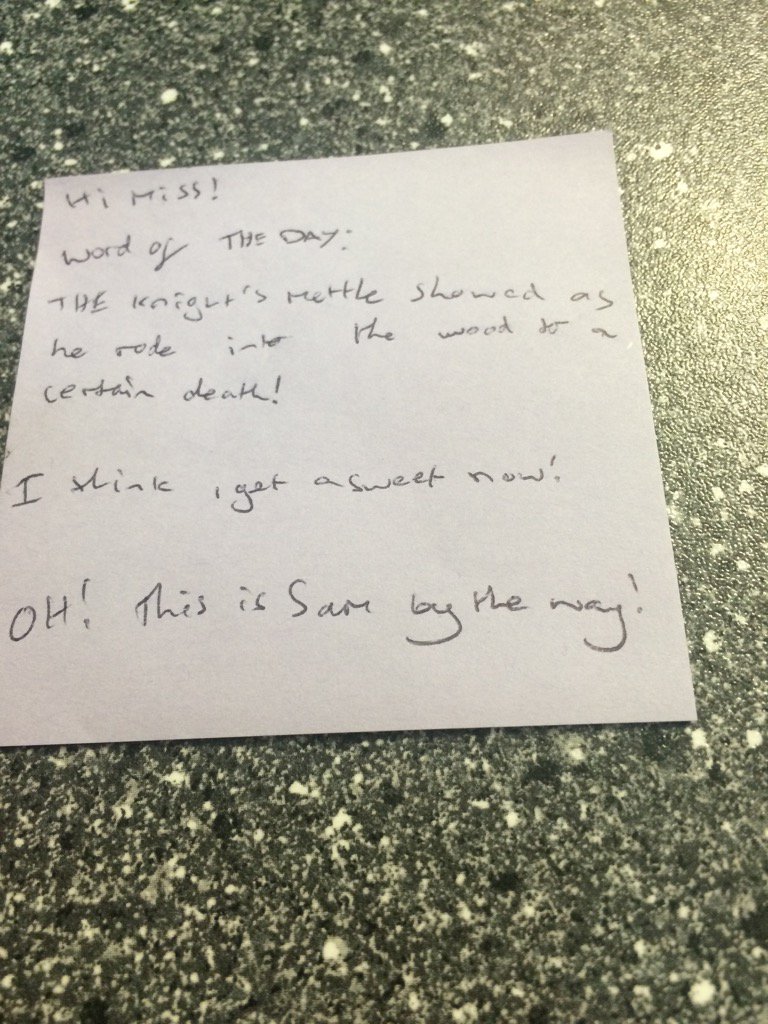 Hi Miss!
Word of THE DAY:
THE Knight's Mettle showed as
he rode into the wood to a
certain death!
I think I get a sweet now!
OH! This is Sam by the way!